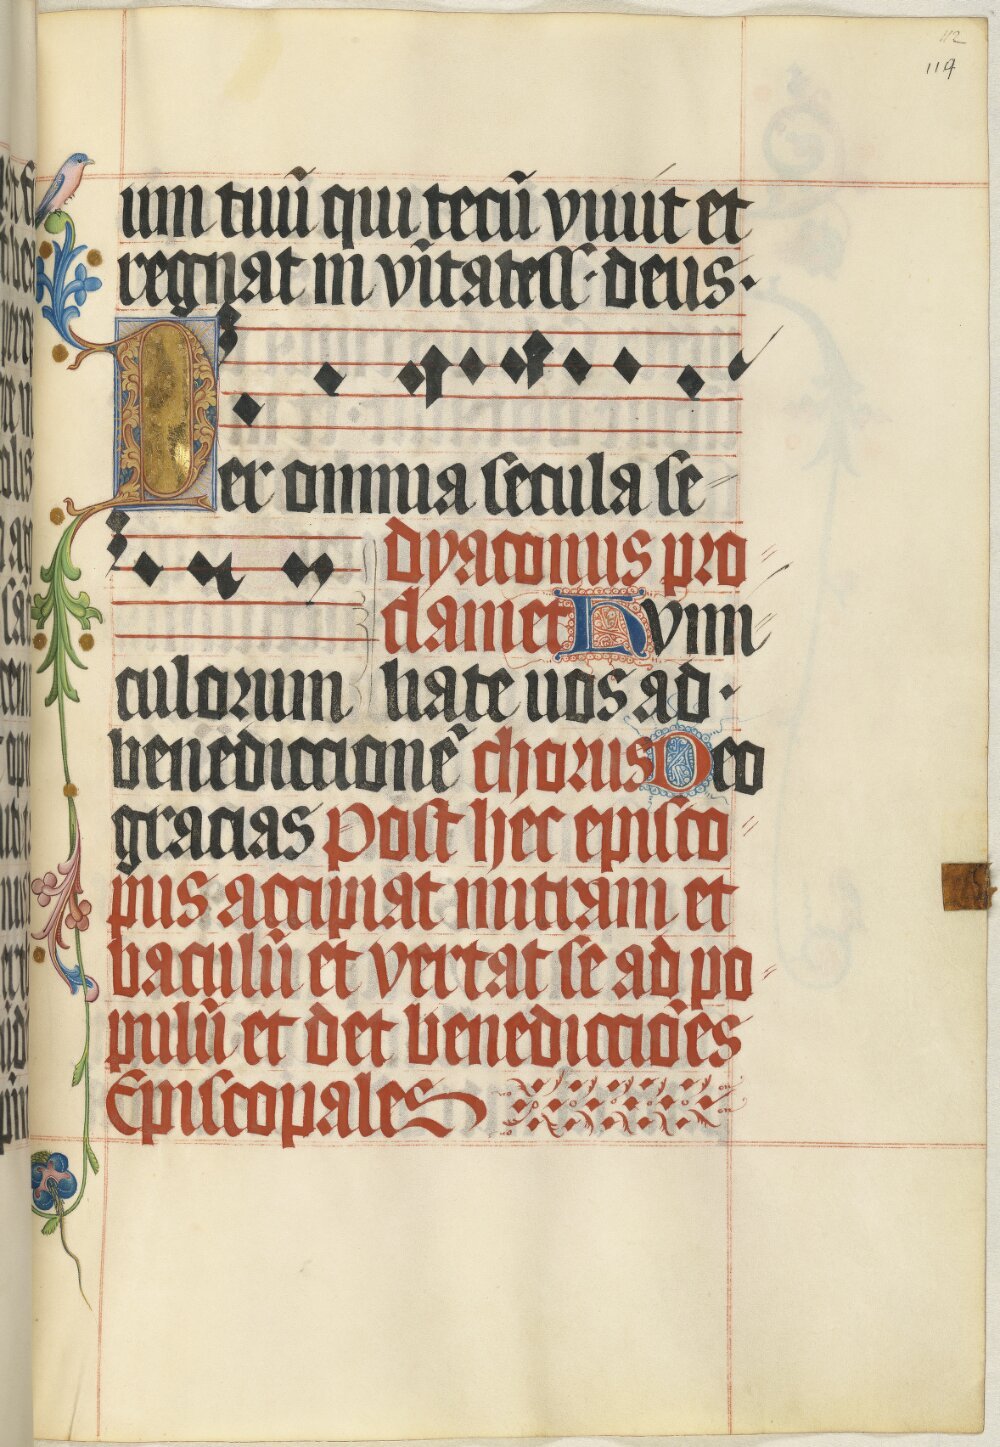 112
119
um tuū qui tecū viuit et
regnat in vītate ss · deus ·
Per omnia secula se
dyaconus pro
clamet Hvmi
culorum liate uos ad ·
benediccionē chorus Deo
gracias Post hec episco
pus accipiat mitram et
baculū et vertat se ad po
pulū et det benediccōēs
Episcopales